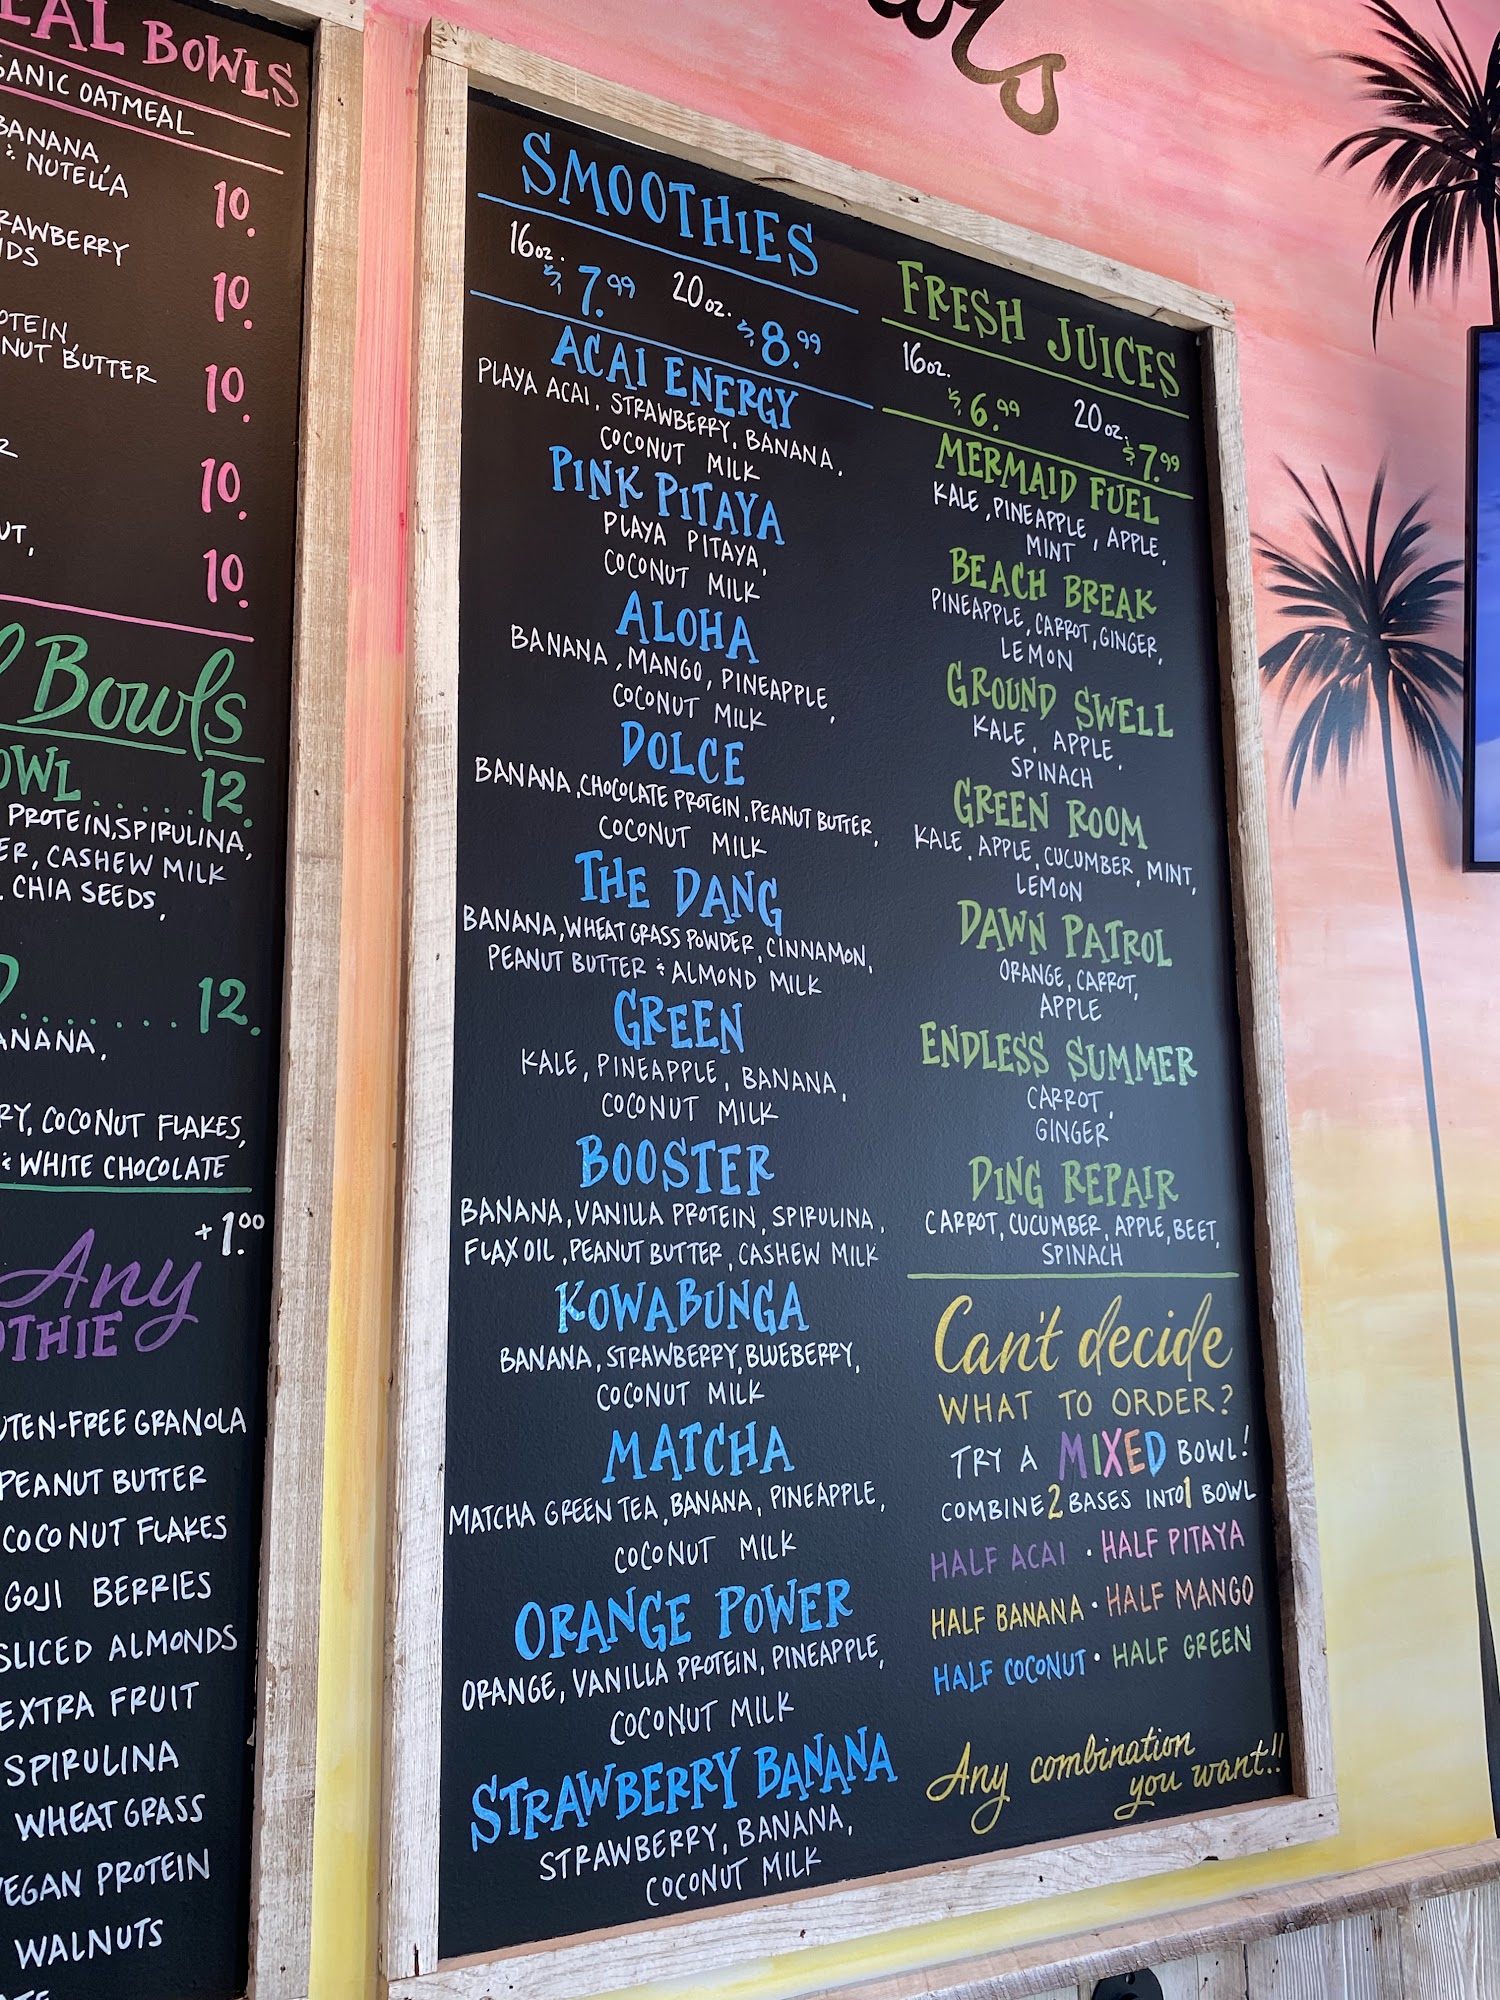 BOWLS
OATMEAL
BANANA,
& NUTELLA
10.
10.
NUT BUTTER
10.
10.
10.
Bowls
12.
PROTEIN, SPIRULINA,
CASHEW MILK
CHIA SEEDS,
12.
COCONUT FLAKES,
& WHITE CHOCOLATE
+1.00
Any
GRANOLA
PEANUT BUTTER
COCONUT FLAKES
GOJI BERRIES
SLICED ALMONDS
EXTRA FRUIT
SPIRULINA
WHEAT GRASS
VEGAN PROTEIN
WALNUTS
SMOOTHIES
16oz. $7.99 20oz. $8.99
ACAI ENERGY
PLAYA ACAI, STRAWBERRY, BANANA,
COCONUT MILK
PINK PITAYA
PLAYA PITAYA,
COCONUT MILK
ALOHA
BANANA, MANGO, PINEAPPLE,
COCONUT MILK
DOLCE
BANANA, CHOCOLATE PROTEIN, PEANUT BUTTER,
COCONUT MILK
THE DANG
BANANA, WHEAT GRASS POWDER, CINNAMON,
PEANUT BUTTER & ALMOND MILK
GREEN
KALE, PINEAPPLE, BANANA,
COCONUT MILK
BOOSTER
BANANA, VANILLA PROTEIN, SPIRULINA,
FLAX OIL, PEANUT BUTTER, CASHEW MILK
KOWABUNGA
BANANA, STRAWBERRY, BLUEBERRY,
COCONUT MILK
MATCHA
MATCHA GREEN TEA, BANANA, PINEAPPLE,
COCONUT MILK
ORANGE POWER
ORANGE, VANILLA PROTEIN, PINEAPPLE,
COCONUT MILK
STRAWBERRY BANANA
STRAWBERRY, BANANA,
COCONUT MILK
FRESH JUICES
16oz. $6.99 20oz. $7.99
MERMAID FUEL
KALE, PINEAPPLE, APPLE,
MINT
BEACH BREAK
PINEAPPLE, CARROT, GINGER,
LEMON
GROUND SWELL
KALE, APPLE,
SPINACH
GREEN ROOM
KALE, APPLE, CUCUMBER, MINT,
LEMON
DAWN PATROL
ORANGE, CARROT,
APPLE
ENDLESS SUMMER
CARROT,
GINGER
DING REPAIR
CARROT, CUCUMBER, APPLE, BEET,
SPINACH
Can't decide
WHAT TO ORDER?
TRY A MIXED BOWL!
COMBINE 2 BASES INTO 1 BOWL
HALF ACAI • HALF PITAYA
HALF BANANA • HALF MANGO
HALF COCONUT • HALF GREEN
Any combination
you want!!